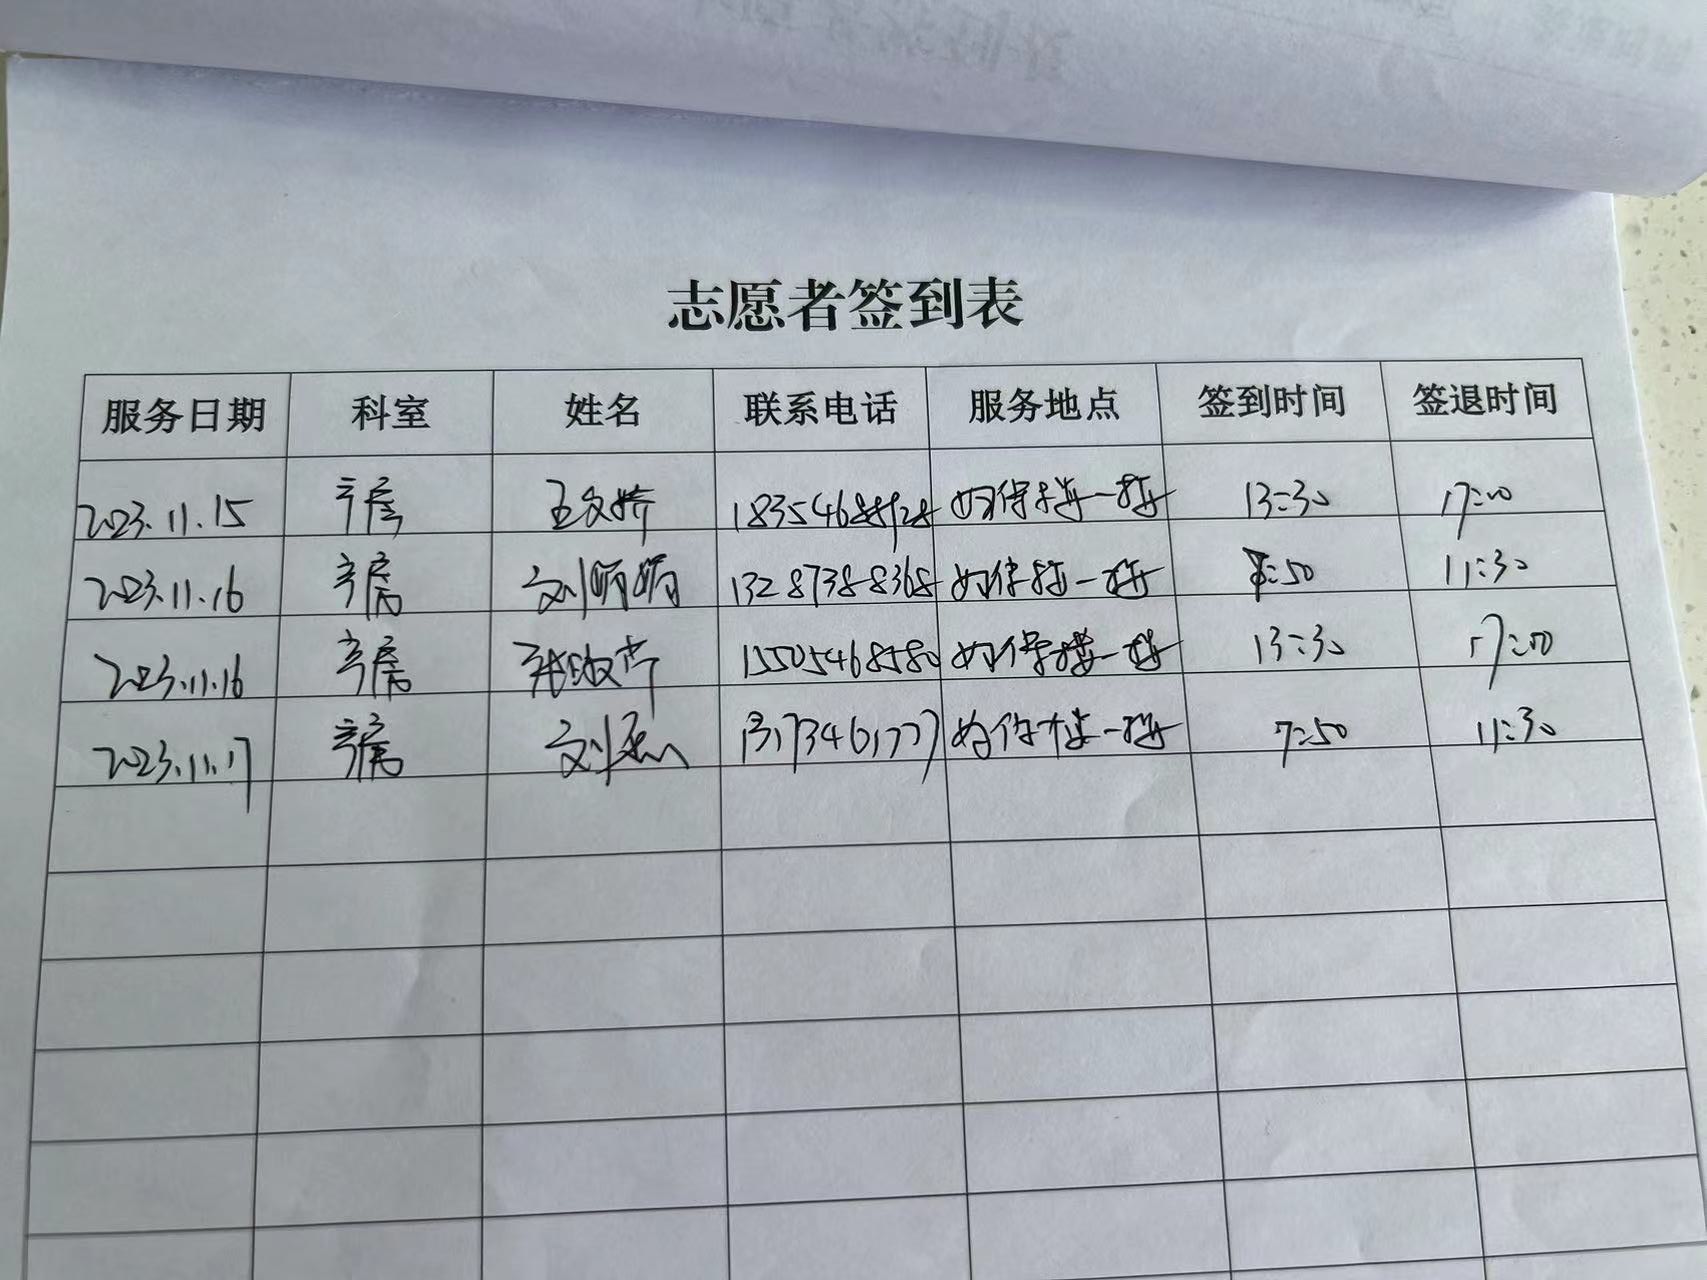 志愿者签到表
服务日期 科室 姓名 联系电话 服务地点 签到时间 签退时间
2023.11.15 产房 王文娇 妇保楼一楼 13:30 17:00
2023.11.16 产房 刘娟娟 13287388368 妇保楼一楼 7:50 11:30
2023.11.16 产房 15505468580 妇保楼一楼 13:30 17:00
2023.11.17 产房 刘磊 13173461777 妇保楼一楼 7:50 11:30